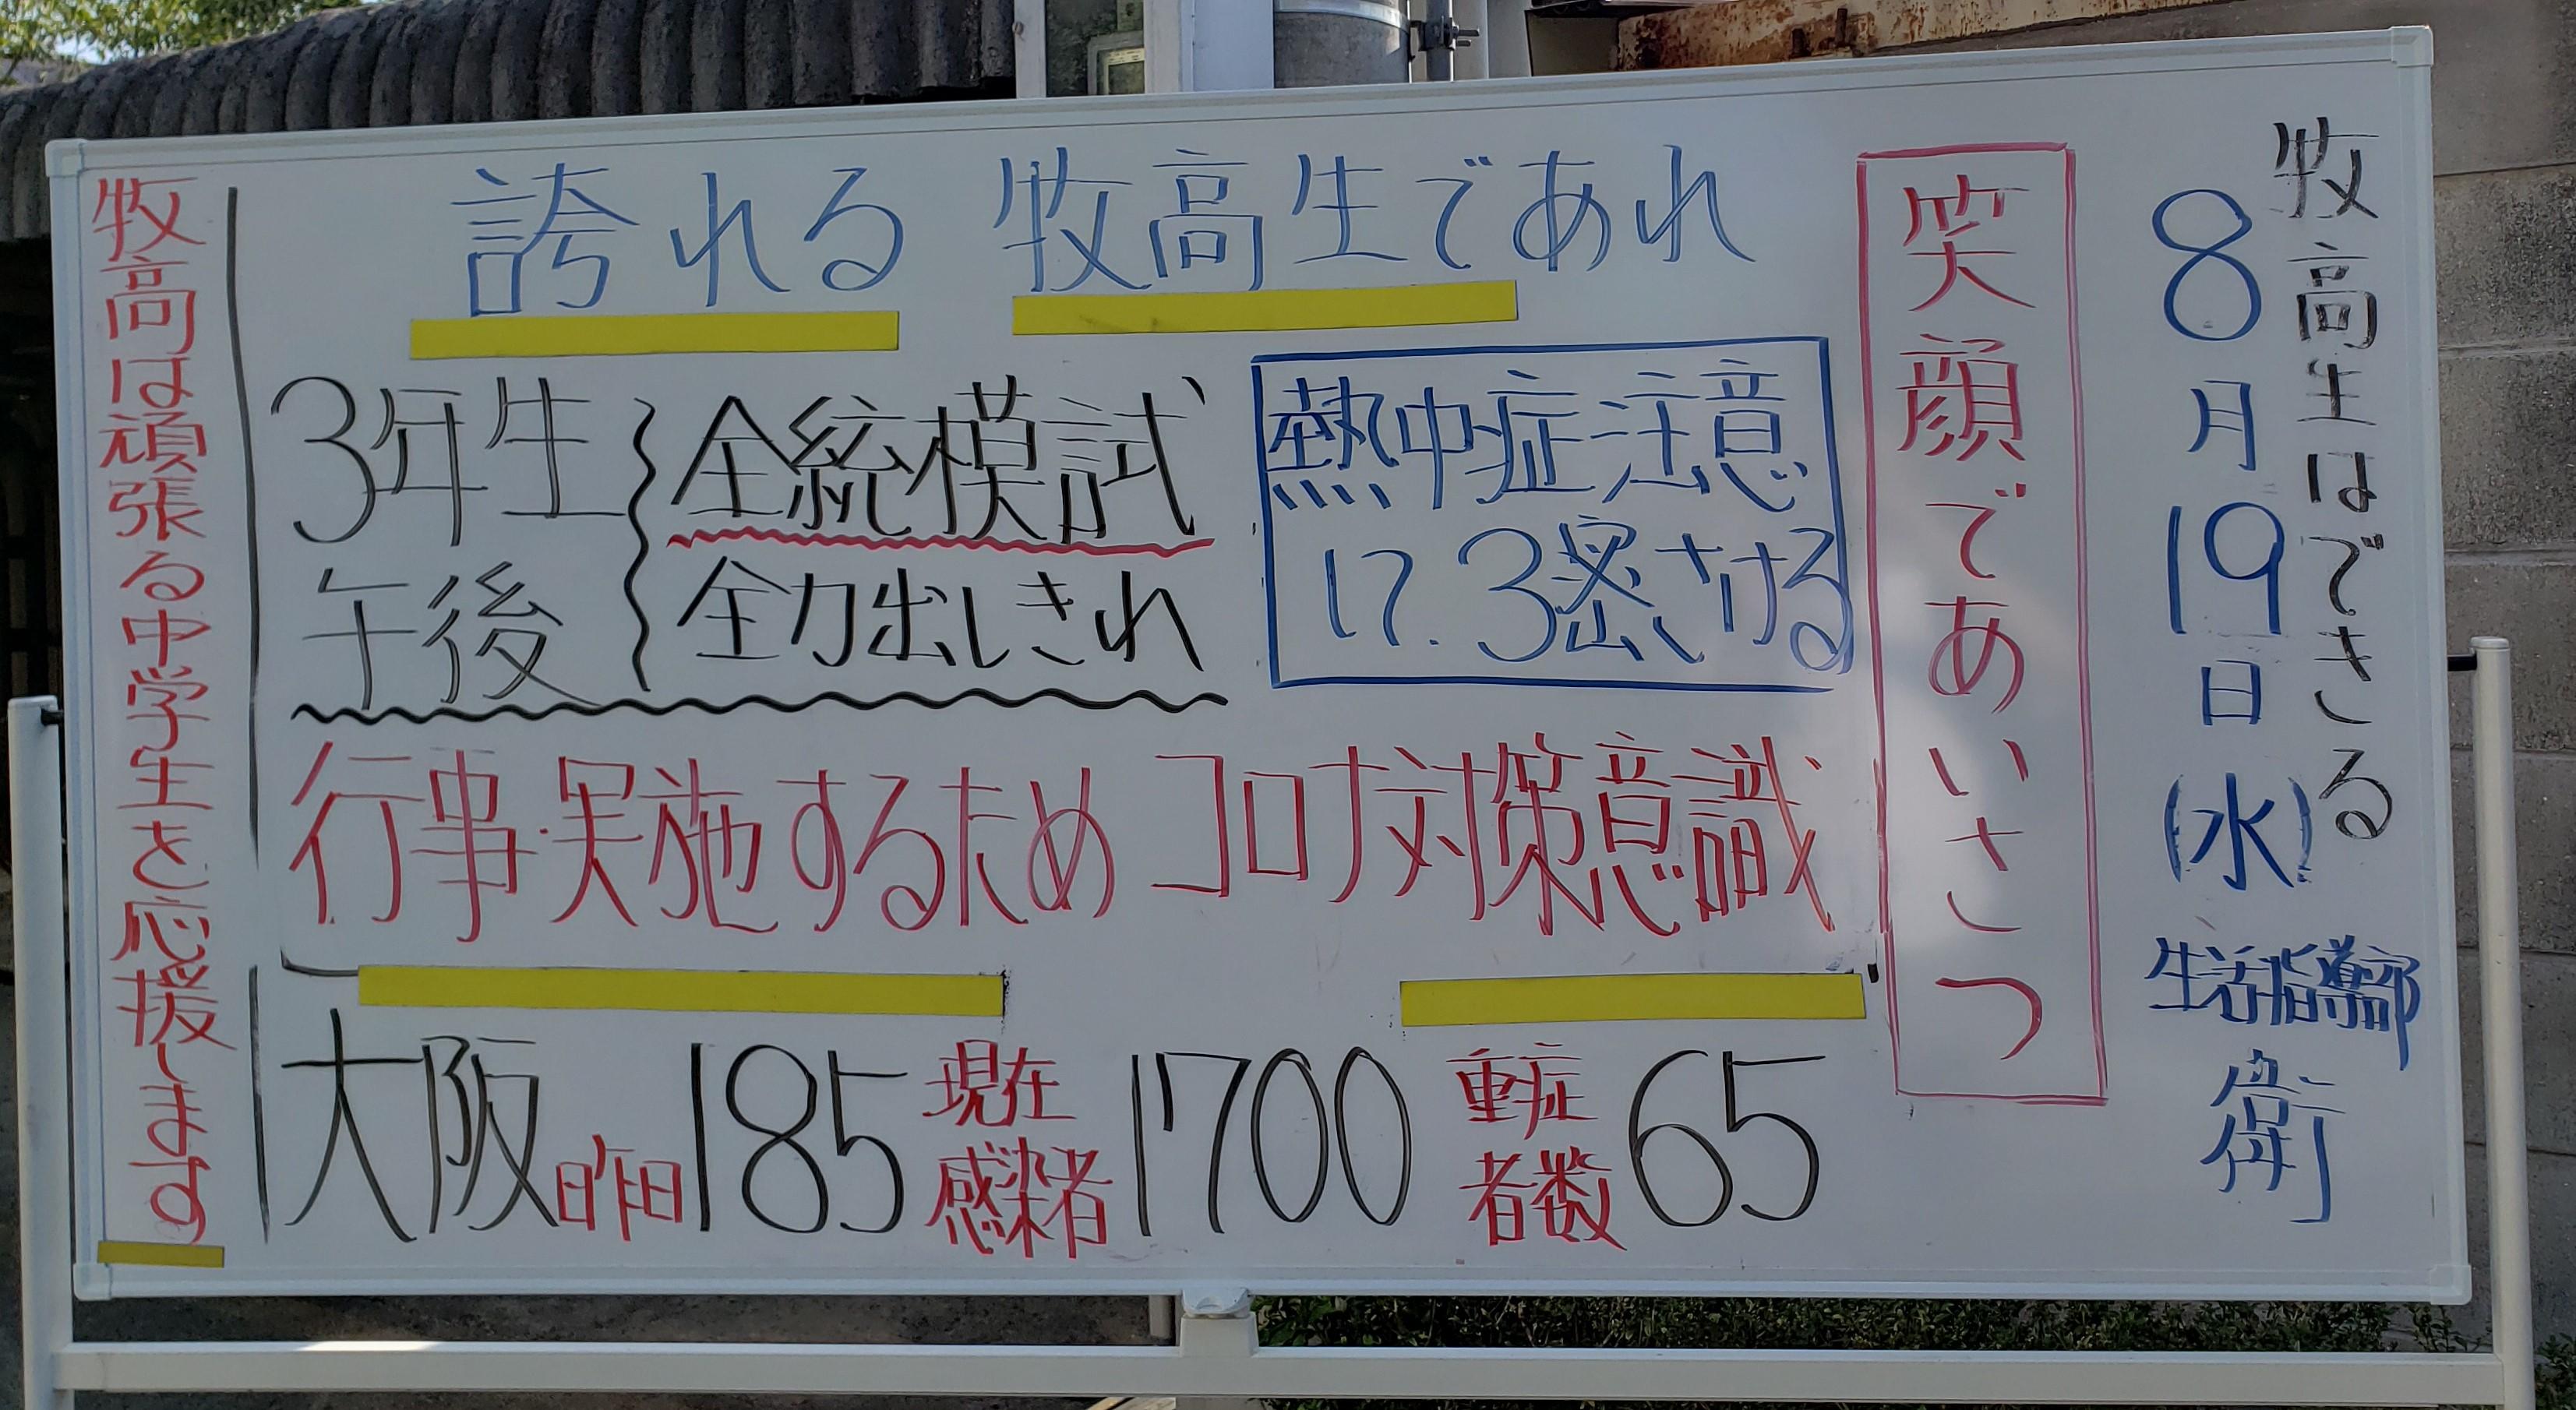 牧高生はできる
8月19日(水)
生活指導部
衛
笑顔であいさつ
誇れる 牧高生であれ
3年生
午後
全統模試
全力出しきれ
熱中症注意
3密さける
行事・実施するため コロナ対策意識
大阪 昨日 185 現在感染者 1700 重症者数 65
牧高は頑張る中学生を応援します